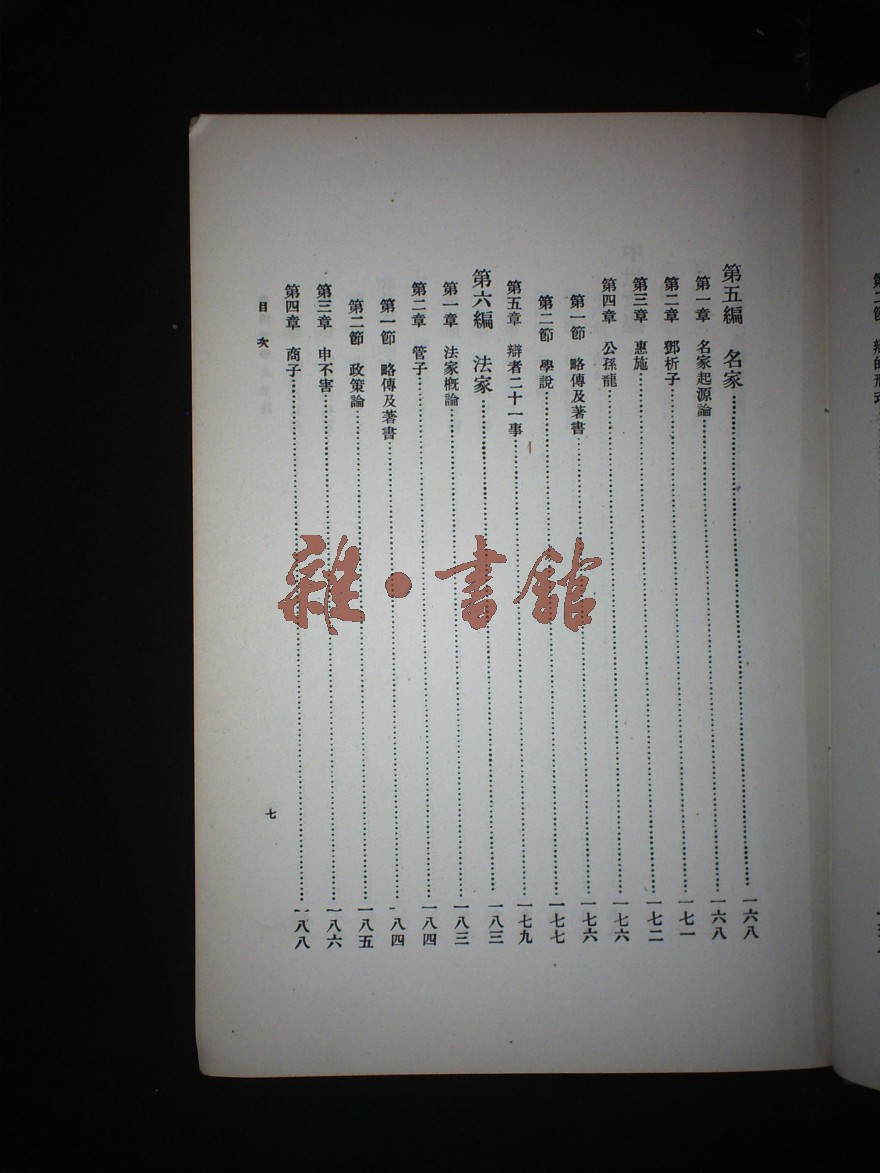 第二節 辯的形式
第五編 名家……一六八
第一章 名家起源論……一六八
第二章 鄧析子……一七一
第三章 惠施……一七二
第四章 公孫龍……一七六
第一節 略傳及著書……一七六
第二節 學說……一七七
第五章 辯者二十一事……一七九
第六編 法家……一八三
第一章 法家概論……一八三
第二章 管子……一八四
第一節 略傳及著書……一八四
第二節 政策論……一八五
第三章 申不害……一八六
第四章 商子……一八八
目次 七
雜·書館